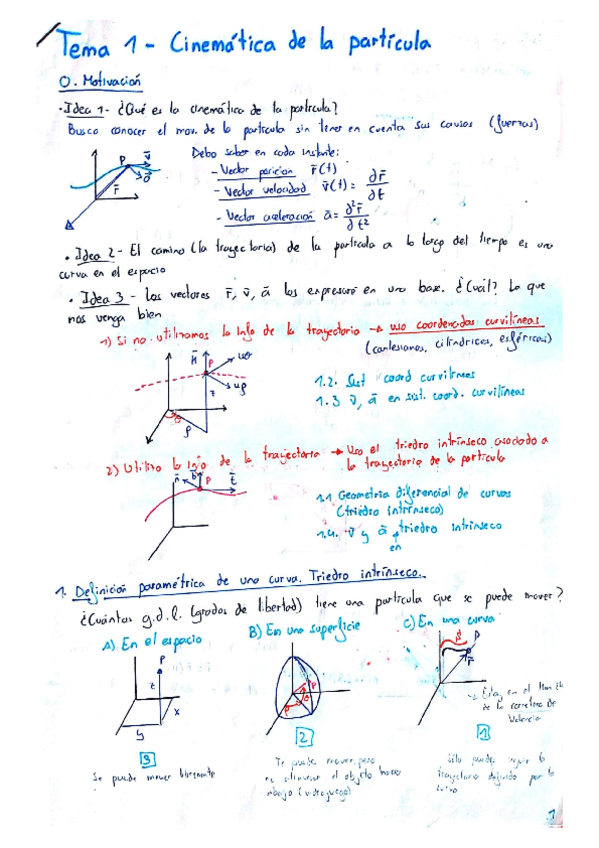 Tema 1 - Cinemática de la partícula
0. Motivación
· Idea 1 - ¿Qué es la cinemática de la partícula?
Busco conocer el mov. de la partícula sin tener en cuenta sus causas (fuerzas)
Debo saber en cada instante:
- Vector posición r̄(t)
- Vector velocidad v̄(t) = ∂r̄/∂t
- Vector aceleración ā = ∂²r̄/∂t²
P v̄ r̄
• Idea 2 - El camino (la trayectoria) de la partícula a lo largo del tiempo es una
curva en el espacio
• Idea 3 - Los vectores r̄, v̄, ā los expresaré en una base. ¿Cuál? La que
nos venga bien
1) Si no utilizamos la info de la trayectoria → uso coordenadas curvilíneas
(cartesianas, cilíndricas, esféricas)
P z θ ρ
1.2. Sist coord curvilíneas
1.3 v̄, ā en sist. coord. curvilíneas
2) Utilizo la info de la trayectoria → Uso el triedro intrínseco asociado a
la trayectoria de la partícula
n̄ b̄ P t̄
1.1 Geometría diferencial de curvas
(triedro intrínseco)
1.4. v̄ y ā en triedro intrínseco
1. Definición paramétrica de una curva. Triedro intrínseco.
¿Cuántos g.d.l. (grados de libertad) tiene una partícula que se puede mover?
A) En el espacio
B) En una superficie
C) En una curva
P z x y
P θ
P r̄
Estoy en el
de la carretera de
Valencia
3
2
1
Se puede mover libremente
Te puede mover, pero
no atravesar el objeto hacia
abajo (videojuego)
Sólo puedes seguir la
trayectoria definida por la
curva
1